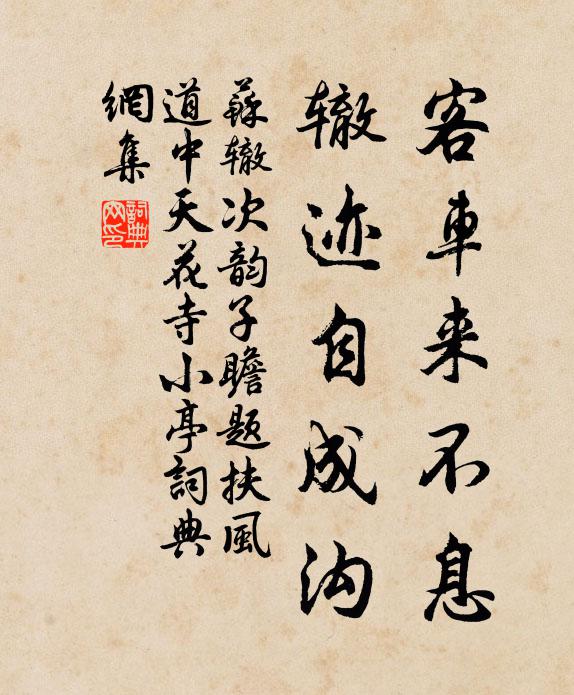 客車来不息
辙迹自成沟
蘇辙次韵子瞻题扶風
道中天花寺小亭詞典
網集
詞典
网印